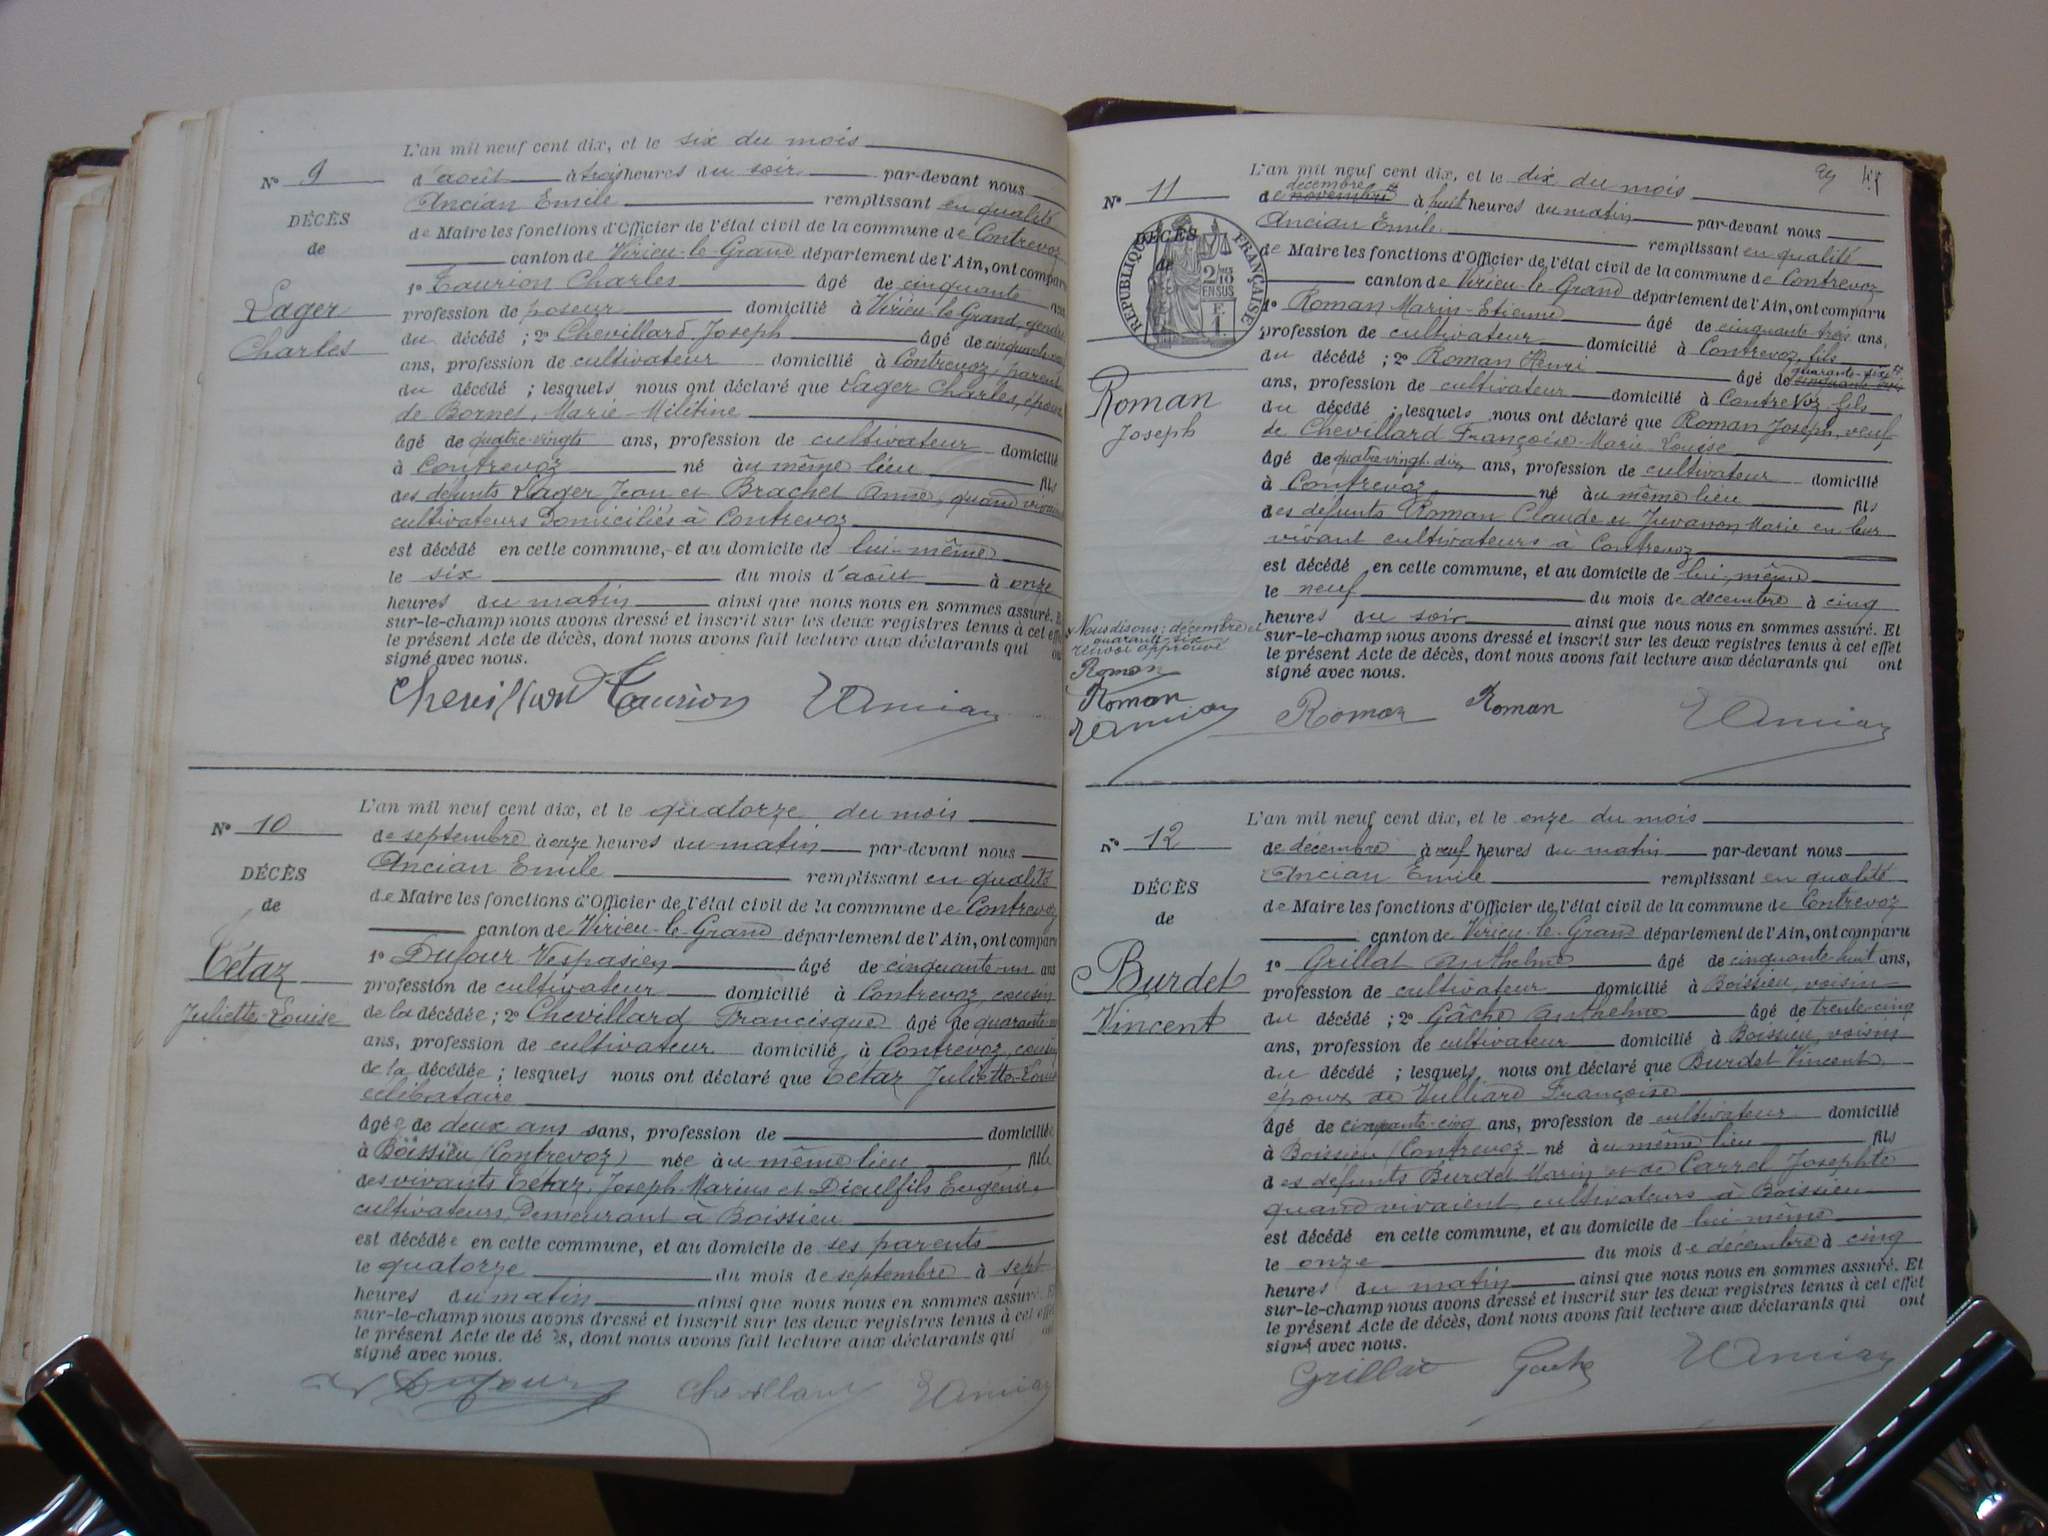 L'an mil neuf cent dix, et le six du mois
N° 9
d'août à trois heures du soir par-devant nous
Ancian Emile remplissant en qualité
DÉCÈS
de Maire les fonctions d'Officier de l'état civil de la commune de Contrevoz
de
canton de Virieu-le-Grand département de l'Ain, ont comparu
1° Taurion Charles âgé de cinquante ans
Lager
Charles
profession de poseur domicilié à Virieu-le-Grand, gendre
du décédé ; 2° Chevillard Joseph âgé de cinquante
ans, profession de cultivateur domicilié à Contrevoz, parent
du décédé ; lesquels nous ont déclaré que Lager Charles, époux
de Bornet, Marie-Mélitine
âgé de quatre-vingts ans, profession de cultivateur domicilié
à Contrevoz né au même lieu fils
des défunts Lager Jean et Brachet Anne, quand vivaient
cultivateurs domiciliés à Contrevoz
est décédé en cette commune, et au domicile de lui-même
le six du mois d'août à onze
heures du matin ainsi que nous nous en sommes assuré. Et
sur-le-champ nous avons dressé et inscrit sur les deux registres tenus à cet effet
le présent Acte de décès, dont nous avons fait lecture aux déclarants qui ont
signé avec nous.
Chevillard Taurion EAncian
L'an mil neuf cent dix, et le quatorze du mois
N° 10
de septembre à onze heures du matin par-devant nous
Ancian Emile remplissant en qualité
DÉCÈS
de Maire les fonctions d'Officier de l'état civil de la commune de Contrevoz
de
canton de Virieu-le-Grand département de l'Ain, ont comparu
1° Dufour Vespasien âgé de cinquante-un ans
Tétaz
Juliette-Louise
profession de cultivateur domicilié à Contrevoz, cousin
de la décédée ; 2° Chevillard Francisque âgé de quarante
ans, profession de cultivateur domicilié à Contrevoz, cousin
de la décédée ; lesquels nous ont déclaré que Tétaz Juliette-Louise
célibataire
âgée de deux ans sans, profession de domiciliée
à Boissieu (Contrevoz) née au même lieu fille
des vivants Tétaz, Joseph-Marius et Dieulfils Eugénie,
cultivateurs demeurant à Boissieu
est décédée en cette commune, et au domicile de ses parents
le quatorze du mois de septembre à sept
heures du matin ainsi que nous nous en sommes assuré. Et
sur-le-champ nous avons dressé et inscrit sur les deux registres tenus à cet effet
le présent Acte de décès, dont nous avons fait lecture aux déclarants qui ont
signé avec nous.
Dufour Chevillard EAncian
L'an mil neuf cent dix, et le dix du mois
N° 11
décembre
de novembre à huit heures du matin par-devant nous
Ancian Emile remplissant en qualité
DÉCÈS
de
RÉPUBLIQUE FRANÇAISE
2/10 EN SUS
F. 1.
de Maire les fonctions d'Officier de l'état civil de la commune de Contrevoz
canton de Virieu-le-Grand département de l'Ain, ont comparu
1° Roman Marin-Etienne âgé de cinquante-trois ans,
profession de cultivateur domicilié à Contrevoz, fils
Roman
Joseph
du décédé ; 2° Roman Henri âgé de quarante-six cinquante-trois
ans, profession de cultivateur domicilié à Contrevoz fils
du décédé ; lesquels nous ont déclaré que Roman Joseph, veuf
de Chevillard Françoise-Marie Louise
âgé de quatre vingt-dix ans, profession de cultivateur domicilié
à Contrevoz né au même lieu fils
des défunts Roman Claude et Juvanon Marie en leur
vivant cultivateurs à Contrevoz
est décédé en cette commune, et au domicile de lui-même
le neuf du mois de décembre à cinq
heures du soir ainsi que nous nous en sommes assuré. Et
sur-le-champ nous avons dressé et inscrit sur les deux registres tenus à cet effet
le présent Acte de décès, dont nous avons fait lecture aux déclarants qui ont
signé avec nous.
Nous disons : décembre et
quarante-six
renvoi approuvé
Roman
Roman
EAncian
Roman Roman EAncian
L'an mil neuf cent dix, et le onze du mois
N° 12
de décembre à neuf heures du matin par-devant nous
Ancian Emile remplissant en qualité
DÉCÈS
de Maire les fonctions d'Officier de l'état civil de la commune de Contrevoz
de
canton de Virieu-le-Grand département de l'Ain, ont comparu
1° Grillat Anthelme âgé de cinquante-huit ans,
Burdet
Vincent
profession de cultivateur domicilié à Boissieu, voisin
du décédé ; 2° Gâche Anthelme âgé de trente-cinq
ans, profession de cultivateur domicilié à Boissieu, voisin
du décédé ; lesquels nous ont déclaré que Burdet Vincent,
époux de Vulliard Françoise
âgé de cinquante-cinq ans, profession de cultivateur domicilié
à Boissieu (Contrevoz né au même lieu fils
des défunts Burdet Marin et de Carrel Josephte
quand vivaient cultivateurs à Boissieu
est décédé en cette commune, et au domicile de lui-même
le onze du mois de décembre à cinq
heures du matin ainsi que nous nous en sommes assuré. Et
sur-le-champ nous avons dressé et inscrit sur les deux registres tenus à cet effet
le présent Acte de décès, dont nous avons fait lecture aux déclarants qui ont
signé avec nous.
Grillat Gache EAncian